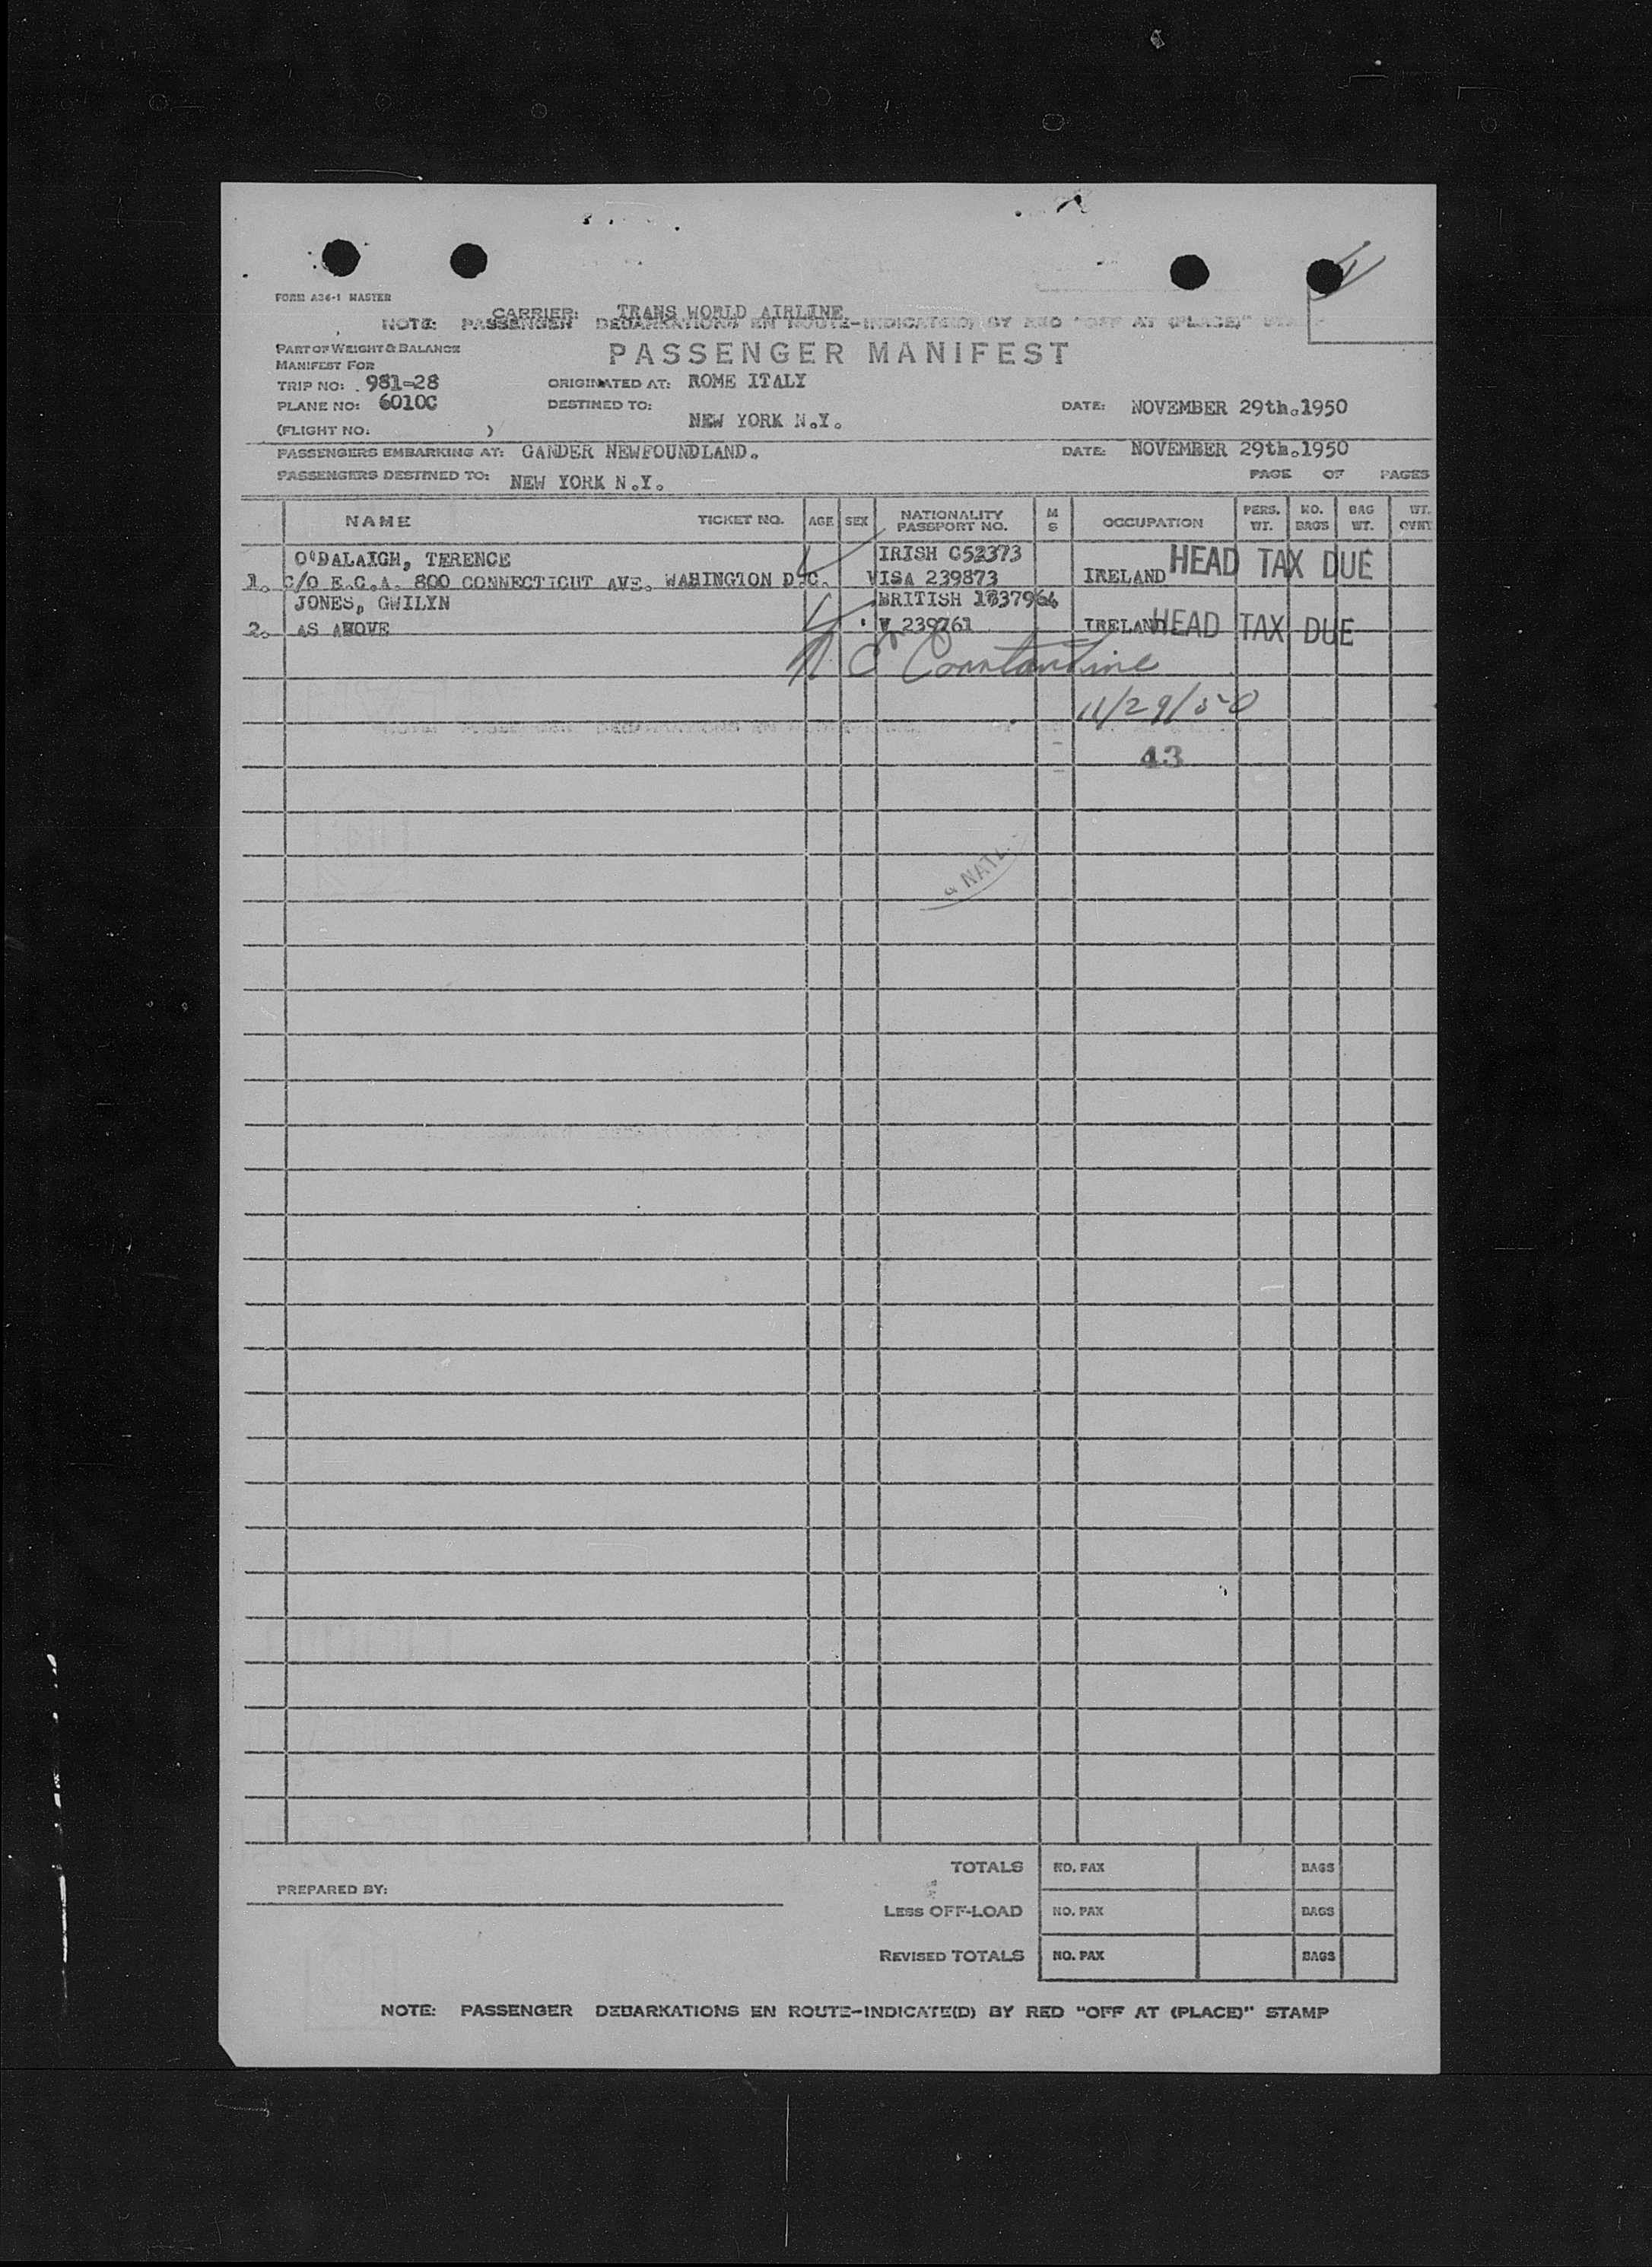 FORM A36-1 MASTER
CARRIER: TRANS WORLD AIRLINE
NOTE: PASSENGER DEBARKATIONS EN ROUTE-INDICATE(D) BY RED "OFF AT (PLACE)" STAMP
PART OF WEIGHT & BALANCE PASSENGER MANIFEST
MANIFEST FOR
TRIP NO: 981-28 ORIGINATED AT: ROME ITALY
PLANE NO: 6010C DESTINED TO: NEW YORK N.Y. DATE: NOVEMBER 29th.1950
(FLIGHT NO: )
PASSENGERS EMBARKING AT: GANDER NEWFOUNDLAND. DATE: NOVEMBER 29th.1950
PASSENGERS DESTINED TO: NEW YORK N.Y. PAGE OF PAGES
NAME TICKET NO. AGE SEX NATIONALITY PASSPORT NO. M S OCCUPATION PERS. WT. NO. BAGS BAG WT. WT. OVNT
O'DALAIGH, TERENCE IRISH C52373 HEAD TAX DUE
1. C/O E.C.A. 800 CONNECTICUT AVE. WASINGTON D.C. VISA 239873 IRELAND
JONES, GWILYN BRITISH
2. AS ABOVE V 239761 IRELAND HEAD TAX DUE
Constantine
11/29/50
43
NATL.
TOTALS NO. PAX BAGS
PREPARED BY:
LESS OFF-LOAD NO. PAX BAGS
REVISED TOTALS NO. PAX BAGS
NOTE: PASSENGER DEBARKATIONS EN ROUTE-INDICATE(D) BY RED "OFF AT (PLACE)" STAMP